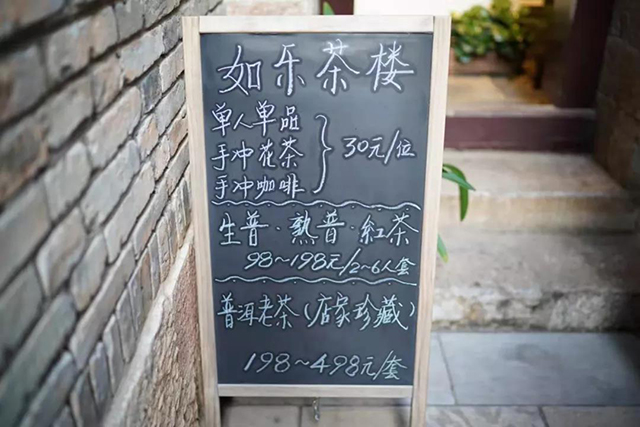 如乐茶楼
单人单品
手冲花茶
手冲咖啡
30元/位
生普·熟普·紅茶
98~198元/2~6人套
普洱老茶(店家珍藏)
198~498元/套